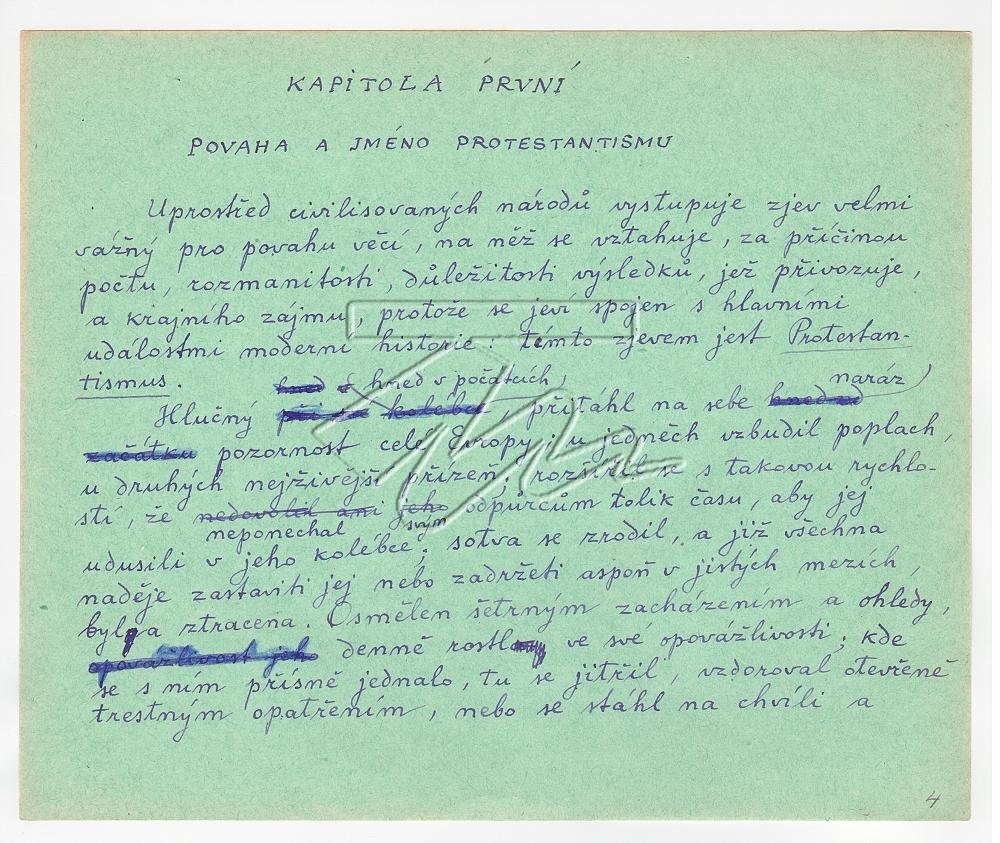 KAPITOLA PRVNÍ
POVAHA A JMÉNO PROTESTANTISMU
Uprostřed civilisovaných národů vystupuje zjev velmi
vážný pro povahu věcí, na něž se vztahuje, za příčinou
počtu, rozmanitosti, důležitosti výsledků, jež přivozuje,
a krajního zájmu, protože se jeví spojen s hlavními
událostmi moderní historie: tímto zjevem jest Protestan-
tismus.
hned v počátcích, naráz
Hlučný při kolébce, přitáhl na sebe hned
začátku pozornost celé Evropy; u jedněch vzbudil poplach,
u druhých nejživější přízeň; rozšířil se s takovou rychlo-
stí, že nedovolil ani jeho odpůrcům tolik času, aby jej
neponechal svým
udusili v jeho kolébce; sotva se zrodil, a již všechna
naděje zastaviti jej nebo zadržeti aspoň v jistých mezích,
byla ztracena. Osmělen šetrným zacházením a ohledy,
opovážlivost jeho denně rostl ve své opovážlivosti; kde
se s ním přísně jednalo, tu se jitřil, vzdoroval otevřeně
trestným opatřením, nebo se stáhl na chvíli a
4